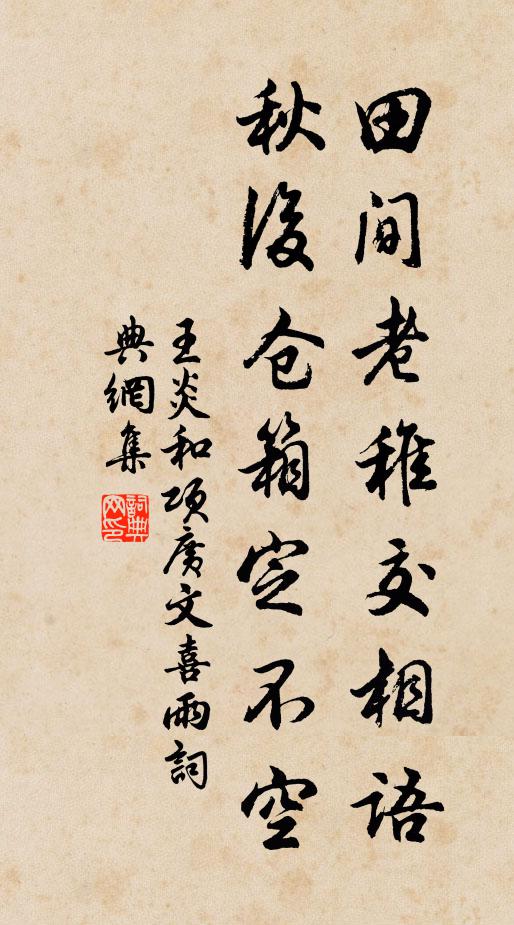 田间老稚交相语
秋后仓箱定不空
王炎和项广文喜雨詞
典網集
詞典网印